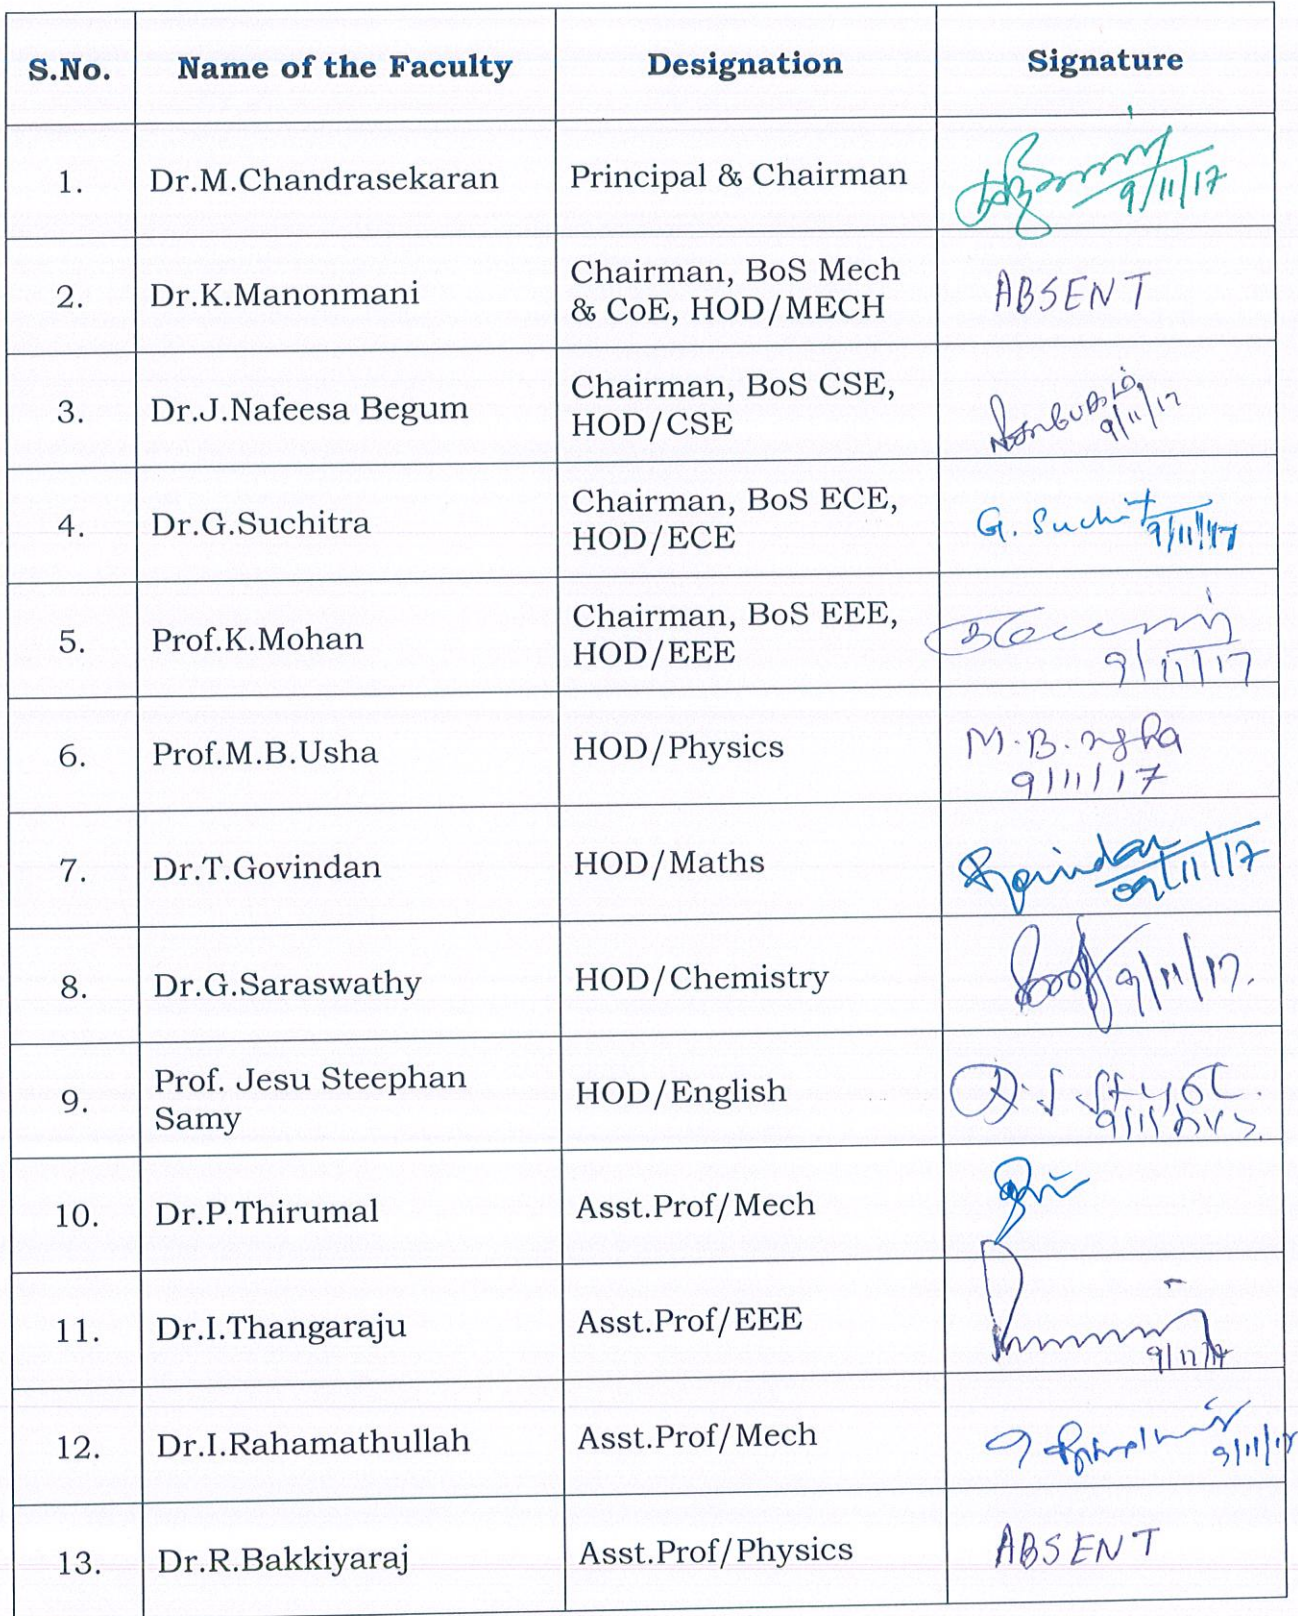 S.No. Name of the Faculty Designation Signature
1. Dr.M.Chandrasekaran Principal & Chairman
9/11/17
2. Dr.K.Manonmani Chairman, BoS Mech
& CoE, HOD/MECH ABSENT
3. Dr.J.Nafeesa Begum Chairman, BoS CSE,
HOD/CSE
9/11/17
4. Dr.G.Suchitra Chairman, BoS ECE,
HOD/ECE G. Suchit
9/11/17
5. Prof.K.Mohan Chairman, BoS EEE,
HOD/EEE
9/11/17
6. Prof.M.B.Usha HOD/Physics M.B.Usha
9/11/17
7. Dr.T.Govindan HOD/Maths Govindan
09/11/17
8. Dr.G.Saraswathy HOD/Chemistry 9/11/17.
9. Prof. Jesu Steephan
Samy HOD/English
10. Dr.P.Thirumal Asst.Prof/Mech
11. Dr.I.Thangaraju Asst.Prof/EEE
9/11/17
12. Dr.I.Rahamathullah Asst.Prof/Mech
9/11/17
13. Dr.R.Bakkiyaraj Asst.Prof/Physics ABSENT